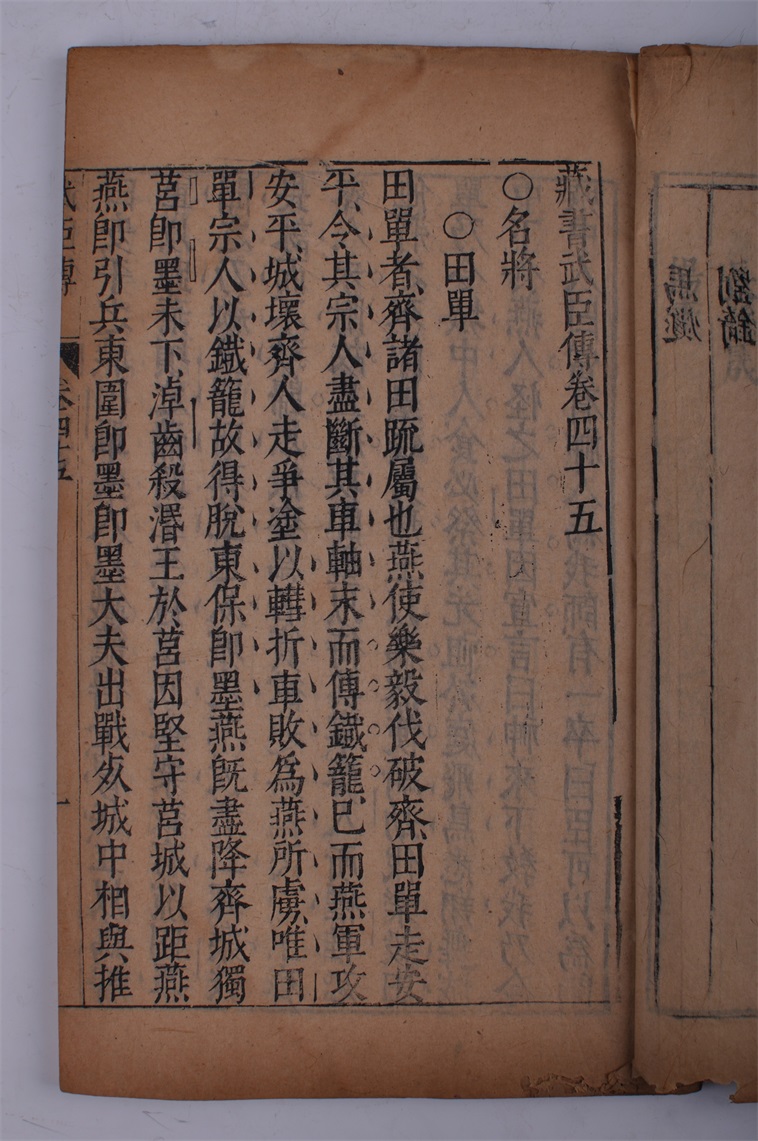 藏書武臣傳卷四十五
○名將
○田單
田單者齊諸田疏屬也燕使樂毅伐破齊田單走安
平令其宗人盡斷其車軸末而傳鐵籠已而燕軍攻
安平城壞齊人走爭塗以轊折車敗爲燕所虜唯田
單宗人以鐵籠故得脫東保卽墨燕旣盡降齊城獨
莒卽墨未下淖齒殺湣王於莒因堅守莒城以距燕
燕卽引兵東圍卽墨卽墨大夫出戰死城中相與推
武臣傳 卷四十五 一